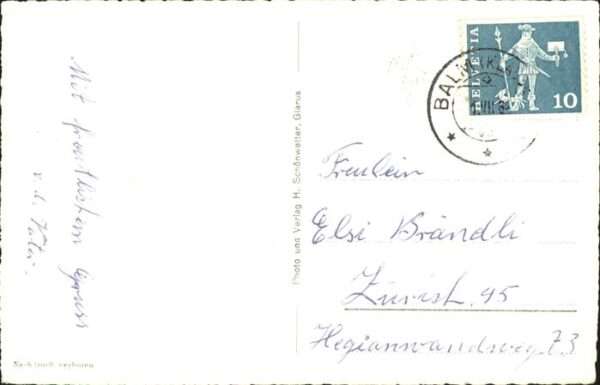 Mit freundlichem Gruss
v. d.
HELVETIA
10
BALM (KLA
VII
Photo und Verlag H. Schönwetter, Glarus
Nachdruck verboten
Fräulein
Elsi Brändli
Zürich 45
Hegianwandweg 73